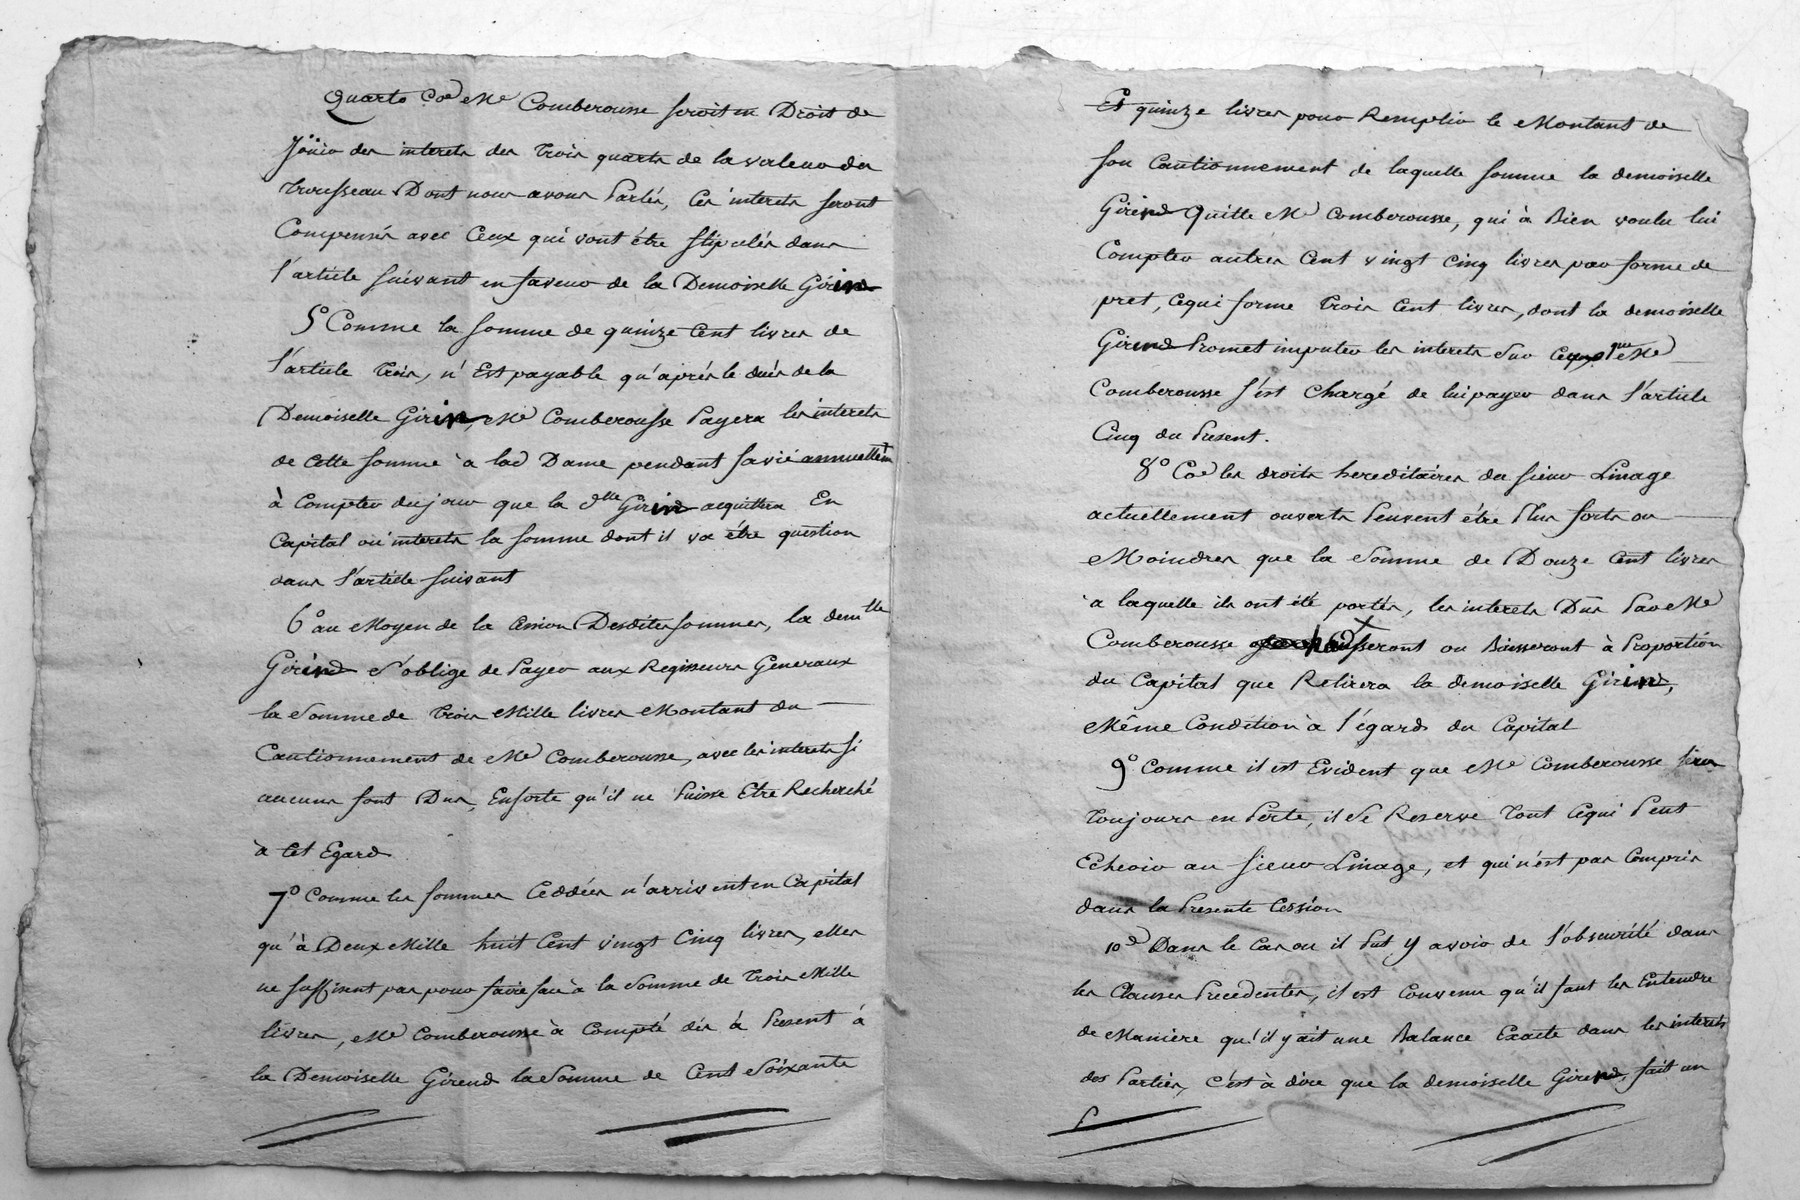 Quarto Coe Me Comberousse seroit en Droit de
Joüir des interets des trois quarts de la valeur du
trousseau Dont nous avons Parlés, Ces interets seront
Compensés avec Ceux qui vont être stipulés dans
l'article suivant en faveur de la Demoiselle Girin
5o Comme la somme de quinze Cent livres de
l'article trois, n'Est payable qu'après le dués de la
Demoiselle Girin, Me Comberousse Payera les interets
de Cette somme à lad Dame pendant sa vie annuellem
à Compter du jour que la dlle Girin acquittera En
Capital ou interets la somme dont il va être question
dans l'article suivant
6o au Moyen de la Cession Desdites sommes, la demlle
Girind s'oblige de Payer aux Regisseurs Generaux
la Somme de trois Mille livres Montant du
Cautionnement de Me Comberousse, avec les interets si
aucuns sont Dus, Ensorte qu'il ne Puisse Etre Recherché
à Cet Egard
7o Comme les sommes Ceddées n'arrivent en Capital
qu'à Deux Mille huit Cent vingt Cinq livres, elles
ne suffisent pas pour faire face à la Somme de trois Mille
livres, Me Comberousse à Compté dès à Present à
la Demoiselle Girend la Somme de Cent Soixante
Et quinze livres pour Remplir le Montant de
son Cautionnement de laquelle somme la demoiselle
Girind Quitte Me Comberousse, qui à Bien voulu lui
Compter autres Cent vingt Cinq livres par forme de
pret, Cequi forme trois Cent livres, dont la demoiselle
Girend Promet imputer les interets Sur Ceux que Me
Comberousse s'est Chargé de lui payer dans l'article
Cinq du Present.
8o Coe les droits hereditaires du sieur Linage
actuellement ouverts Peuvent être Plus forts ou
Moindres que la Somme de Douze Cent livres
à laquelle ils ont été portés, les interets Dûs Par Me
Comberousse hausseront ou Baisseront à Proportion
du Capital que Retirera la demoiselle Girin,
Même Condition à l'égard du Capital
9o Comme il est Evident que Me Comberousse sera
toujours en Perte, il Se Reserve tout Cequi Peut
Echeoir au sieur Linage, et qui n'est pas Compris
dans la Presente Cession
10o Dans le Cas ou il Put y avoir de l'obscurité dans
les Clauses Precedentes, il est Convenu qu'il faut les Entendre
de Maniere qu'il y ait une Balance Exacte dans les interets
des Parties, C'est à dire que la demoiselle Girend, fait un